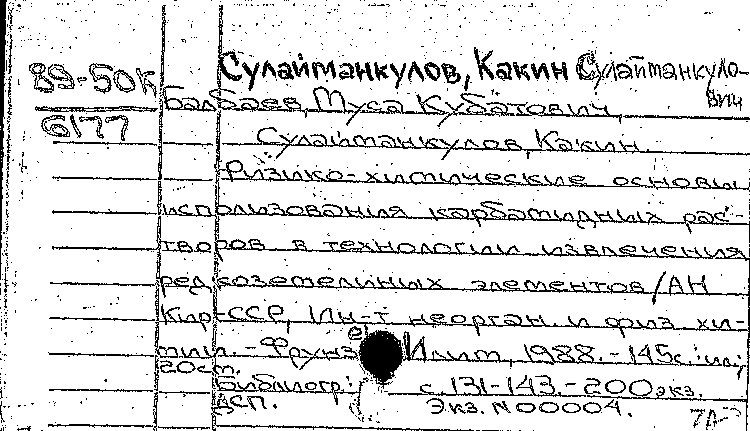 Сулайманкулов, Какин Сулайманкуло-
вич
89-50к
6177
Балбаев, Муса Кубатович,
Сулайманкулов, Какин.
Физико-химические основы
использования карбамидных рас-
творов в технологии извлечения
редкоземельных элементов/АН
КиргССР, Ин-т неорган. и физ. хи-
мии. - Фрунзе: Илим, 1988. - 145с.: ил;
20см.
Библиогр.: с. 131-143. - 200 экз.
ДСП. Экз. N 00004.